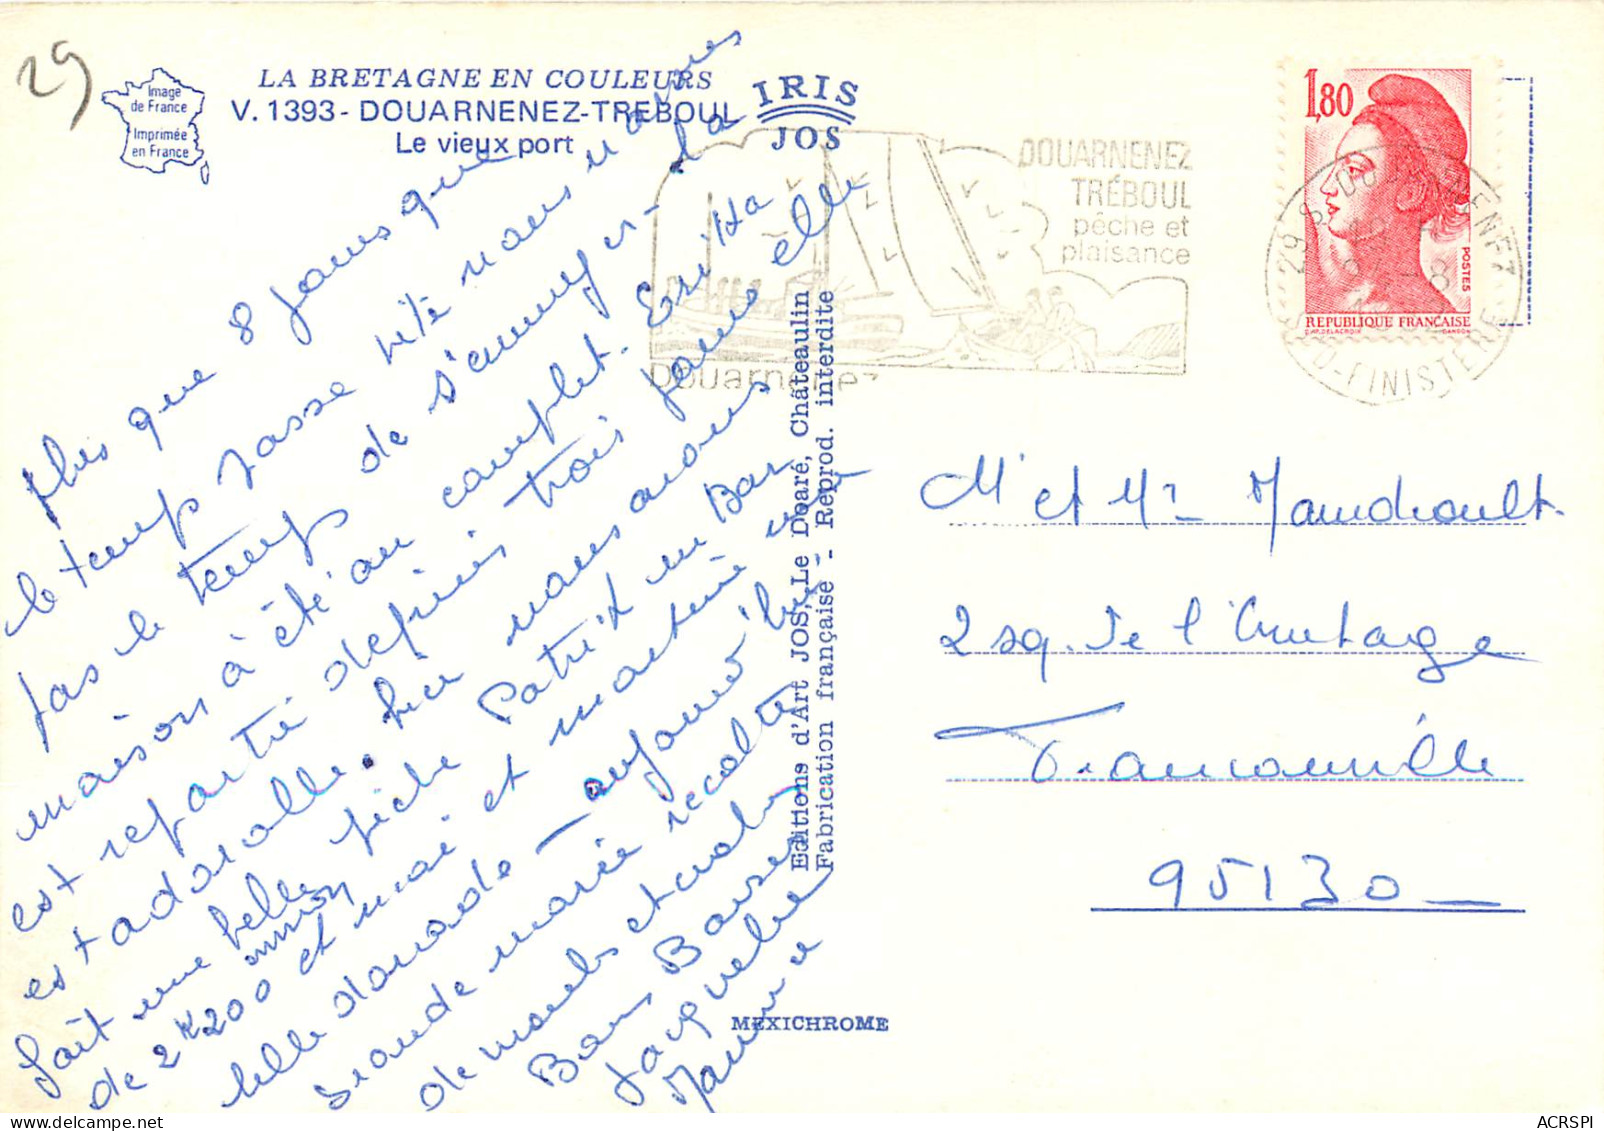 29
Image
de France
Imprimée
en France
LA BRETAGNE EN COULEURS
V. 1393 - DOUARNENEZ-TREBOUL
Le vieux port
IRIS
JOS
DOUARNENEZ
TRÉBOUL
pêche et
plaisance
Douarnenez
1,80
POSTES
REPUBLIQUE FRANÇAISE
D'AP. DELACROIX
GANDON
29 S DOUARNENEZ
SUD-FINISTERE
Plus que 8 jours que
le temps passe vite nous n'avons
pas le temps de s'ennuyer - la
maison a été au complet. Erika
est repartie depuis trois jours elle
est adorable. hier nous avons
fait une belle pêche Patrik un Bar
de 2K200 environ et moi et martine une
belle dorade - aujourd'hui
grande marée recolte
de moules et crabes
Bons Baisers
Jacqueline
Maurice
Editions d'Art JOS, Le Doaré, Châteaulin
Fabrication française - Reprod. interdite
MEXICHROME
Mr et Me
2 sq. de l'Ermitage
Franconville
95130
ACRSPI